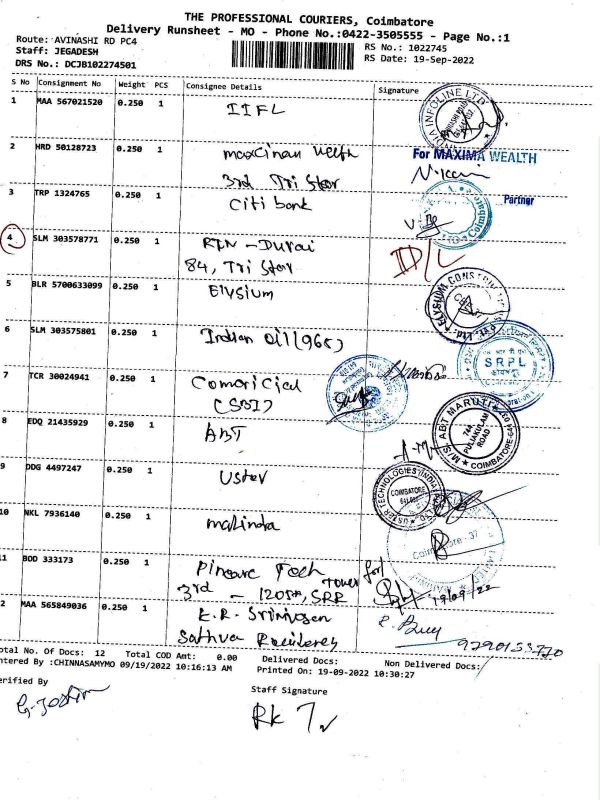 THE PROFESSIONAL COURIERS, Coimbatore
Delivery Runsheet - MO - Phone No.:0422-3505555 - Page No.:1
Route: AVINASHI RD PC4
RS No.: 1022745
Staff: JEGADESH
RS Date: 19-Sep-2022
DRS No.: DCJB102274501
S No Consignment No Weight PCS Consignee Details Signature
1 MAA 567021520 0.250 1 IIFL
2 HRD 50128723 0.250 1
For MAXIMA WEALTH
3rd Tri Star
Partner
3 TRP 1324765 0.250 1 Citi bank
4 SLM 303578771 0.250 1 - Durai
84, Tri Star
ID/L
5 BLR 5700633099 0.250 1 Elysium
ELYSIUM
6 SLM 303575801 0.250 1 Indian Oil (965)
SRPL
7 TCR 30024941 0.250 1
8 EDQ 21435929 0.250 1 ABT
M/S. ABT MARUTI
744,
PULIAKULAM
ROAD
COIMBATORE-641
9 DDG 4497247 0.250 1 Uster
USTER TECHNOLOGIES
COIMBATORE
10 NKL 7936140 0.250 1 mahindra
Coimbatore. 37
11 BOD 333173 0.250 1
3rd - Tower
19/09/22
2 MAA 565849036 0.250 1 K.R. Srinivasan
Sathva
9790153770
otal No. Of Docs: 12 Total COD Amt: 0.00 Delivered Docs: Non Delivered Docs:
ntered By :CHINNASAMYMO 09/19/2022 10:16:13 AM Printed On: 19-09-2022 10:30:27
erified By
Staff Signature